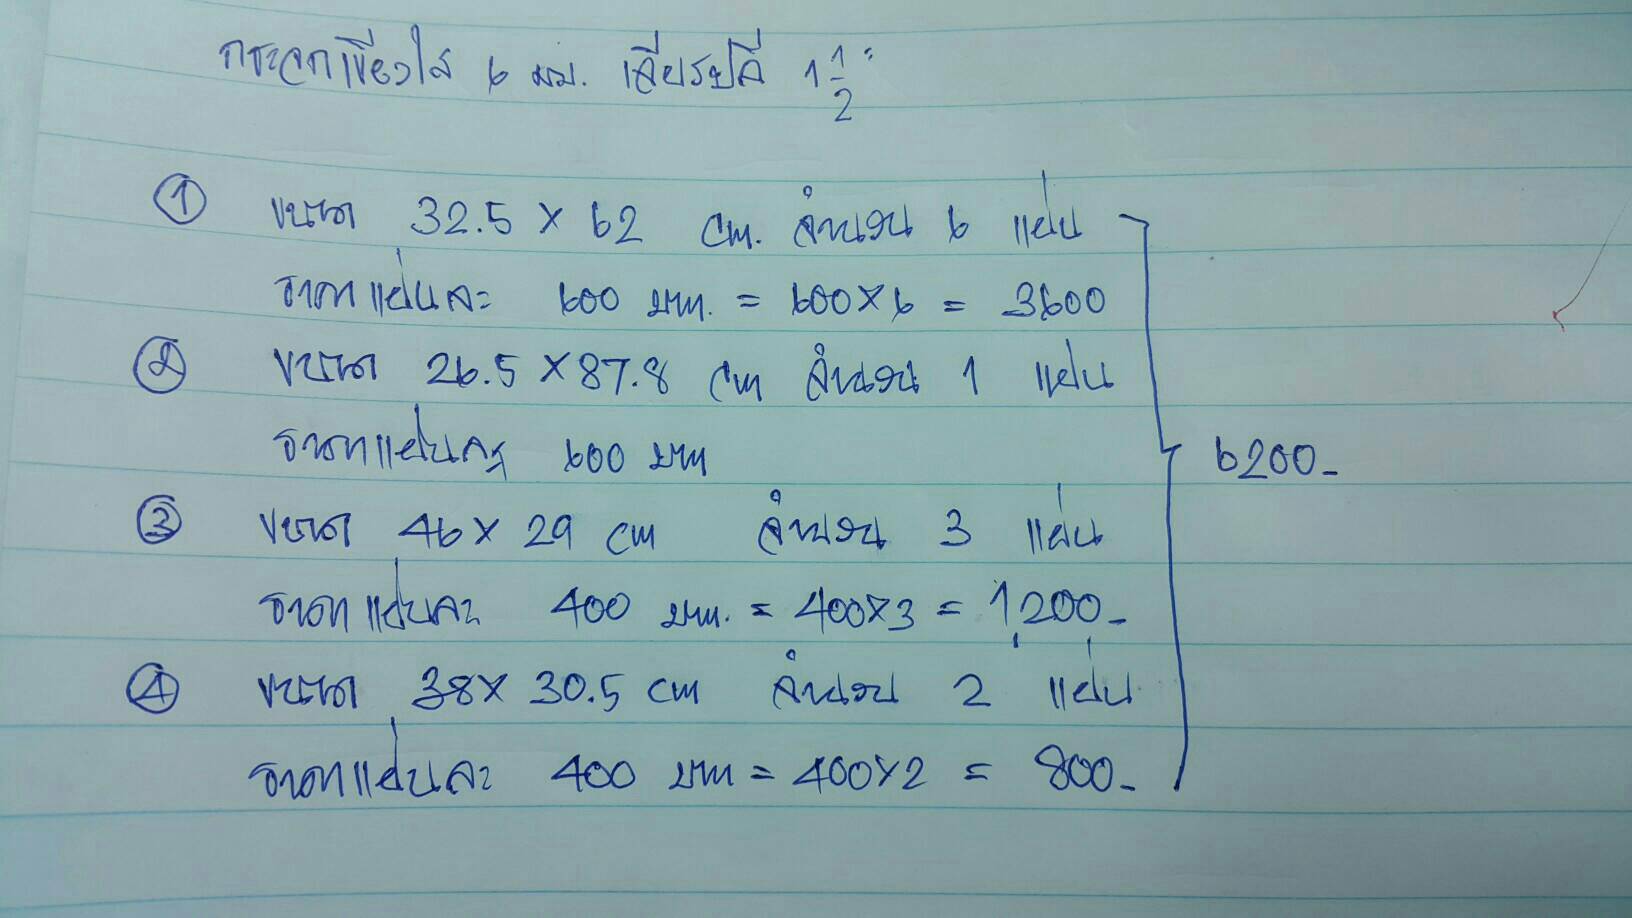 กระจกเขียวใส 6 มม. เจียรปลี 1 1/2"
① ขนาด 32.5 x 62 cm. จำนวน 6 แผ่น
ราคาแผ่นละ 600 บาท. = 600x6 = 3600
② ขนาด 26.5 x 87.8 cm จำนวน 1 แผ่น
ราคาแผ่นละ 600 บาท
6200-
③ ขนาด 46 x 29 cm จำนวน 3 แผ่น
ราคาแผ่นละ 400 บาท. = 400x3 = 1,200-
④ ขนาด 38 x 30.5 cm จำนวน 2 แผ่น
ราคาแผ่นละ 400 บาท = 400x2 = 800-